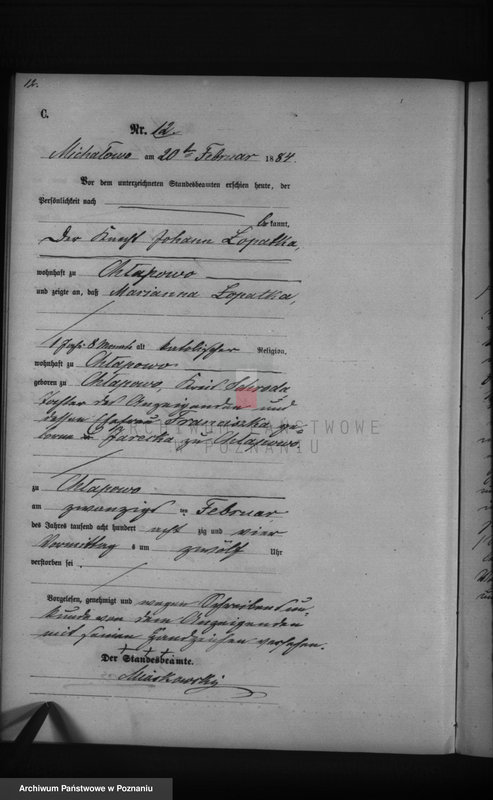 12.
C.
Nr. 12.
Michałowo am 20ten Februar 1884.
Vor dem unterzeichneten Standesbeamten erschien heute, der
Persönlichkeit nach
bekannt,
Der Knecht Johann Lopatka,
wohnhaft zu Chłapowo
und zeigte an, daß Marianna Lopatka,
1 Jahr 8 Monate alt katolischer Religion,
wohnhaft zu Chłapowo
geboren zu Chłapowo, Kreis Schroda
Tochter des Anzeigenden und
dessen Ehefrau Franciszka ge-
borne zu Chłapowo,
ARCHIWUM PAŃSTWOWE
W POZNANIU
zu Chłapowo
am zwanzigsten Februar
des Jahres tausend acht hundert achtzig und vier
Vormittags um zwölf Uhr
verstorben sei.
Vorgelesen, genehmigt und wegen Schreibensun-
kunde von dem Anzeigenden
mit seinen Handzeichen versehen.
+++
Der Standesbeamte.
Miaskowski
Archiwum Państwowe w Poznaniu